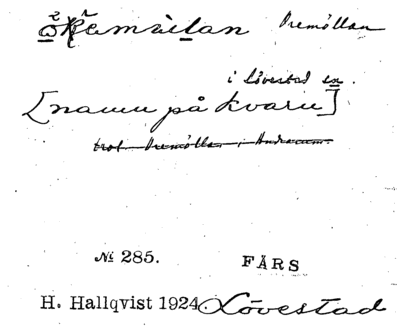 Dremöllan
i Lövestad sn.
[namn på kvarn]
trol. Dremöllan i Andrarum.
№ 285.
FÄRS
H. Hallqvist 1924. Lövestad